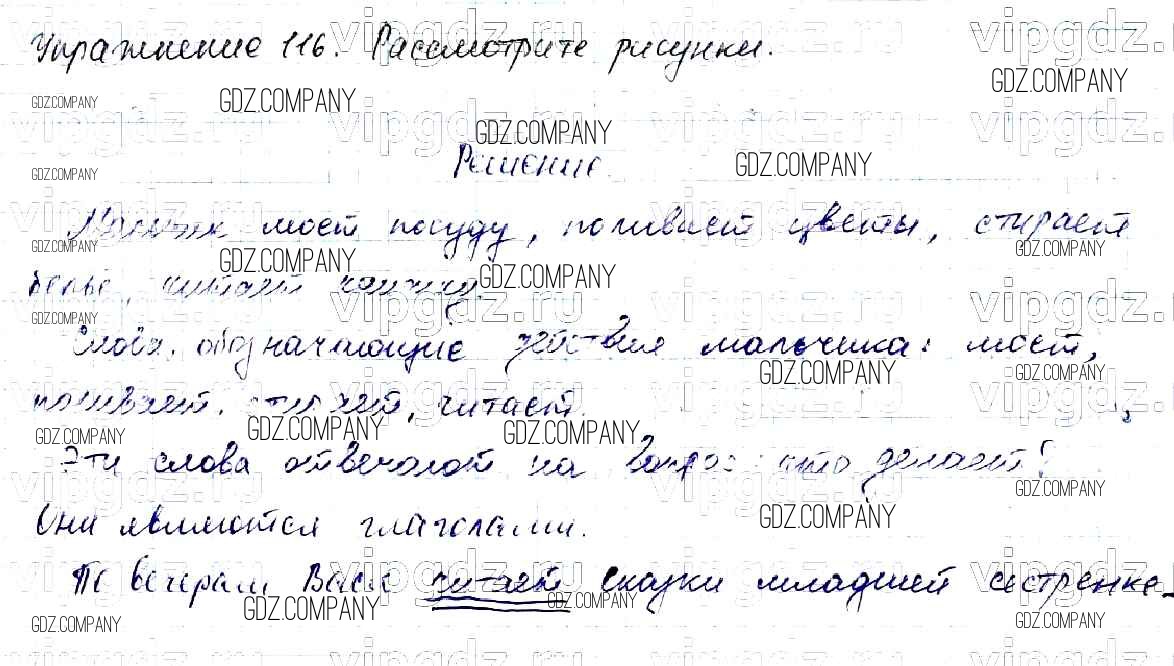 Упражнение 116. Рассмотрите рисунки.
Решение.
Мальчик моет посуду, поливает цветы, стирает
бельё, читает книжку.
Слова, обозначающие действия мальчика: моет,
поливает, стирает, читает.
Эти слова отвечают на вопрос: что делает?
Они являются глаголами.
По вечерам Вася читает сказки младшей сестренке.
GDZ.COMPANY
vipgdz.ru